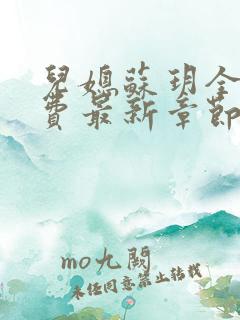 兒媳蘇玥全
費最新章節
mo九閱
未經同意禁止轉載